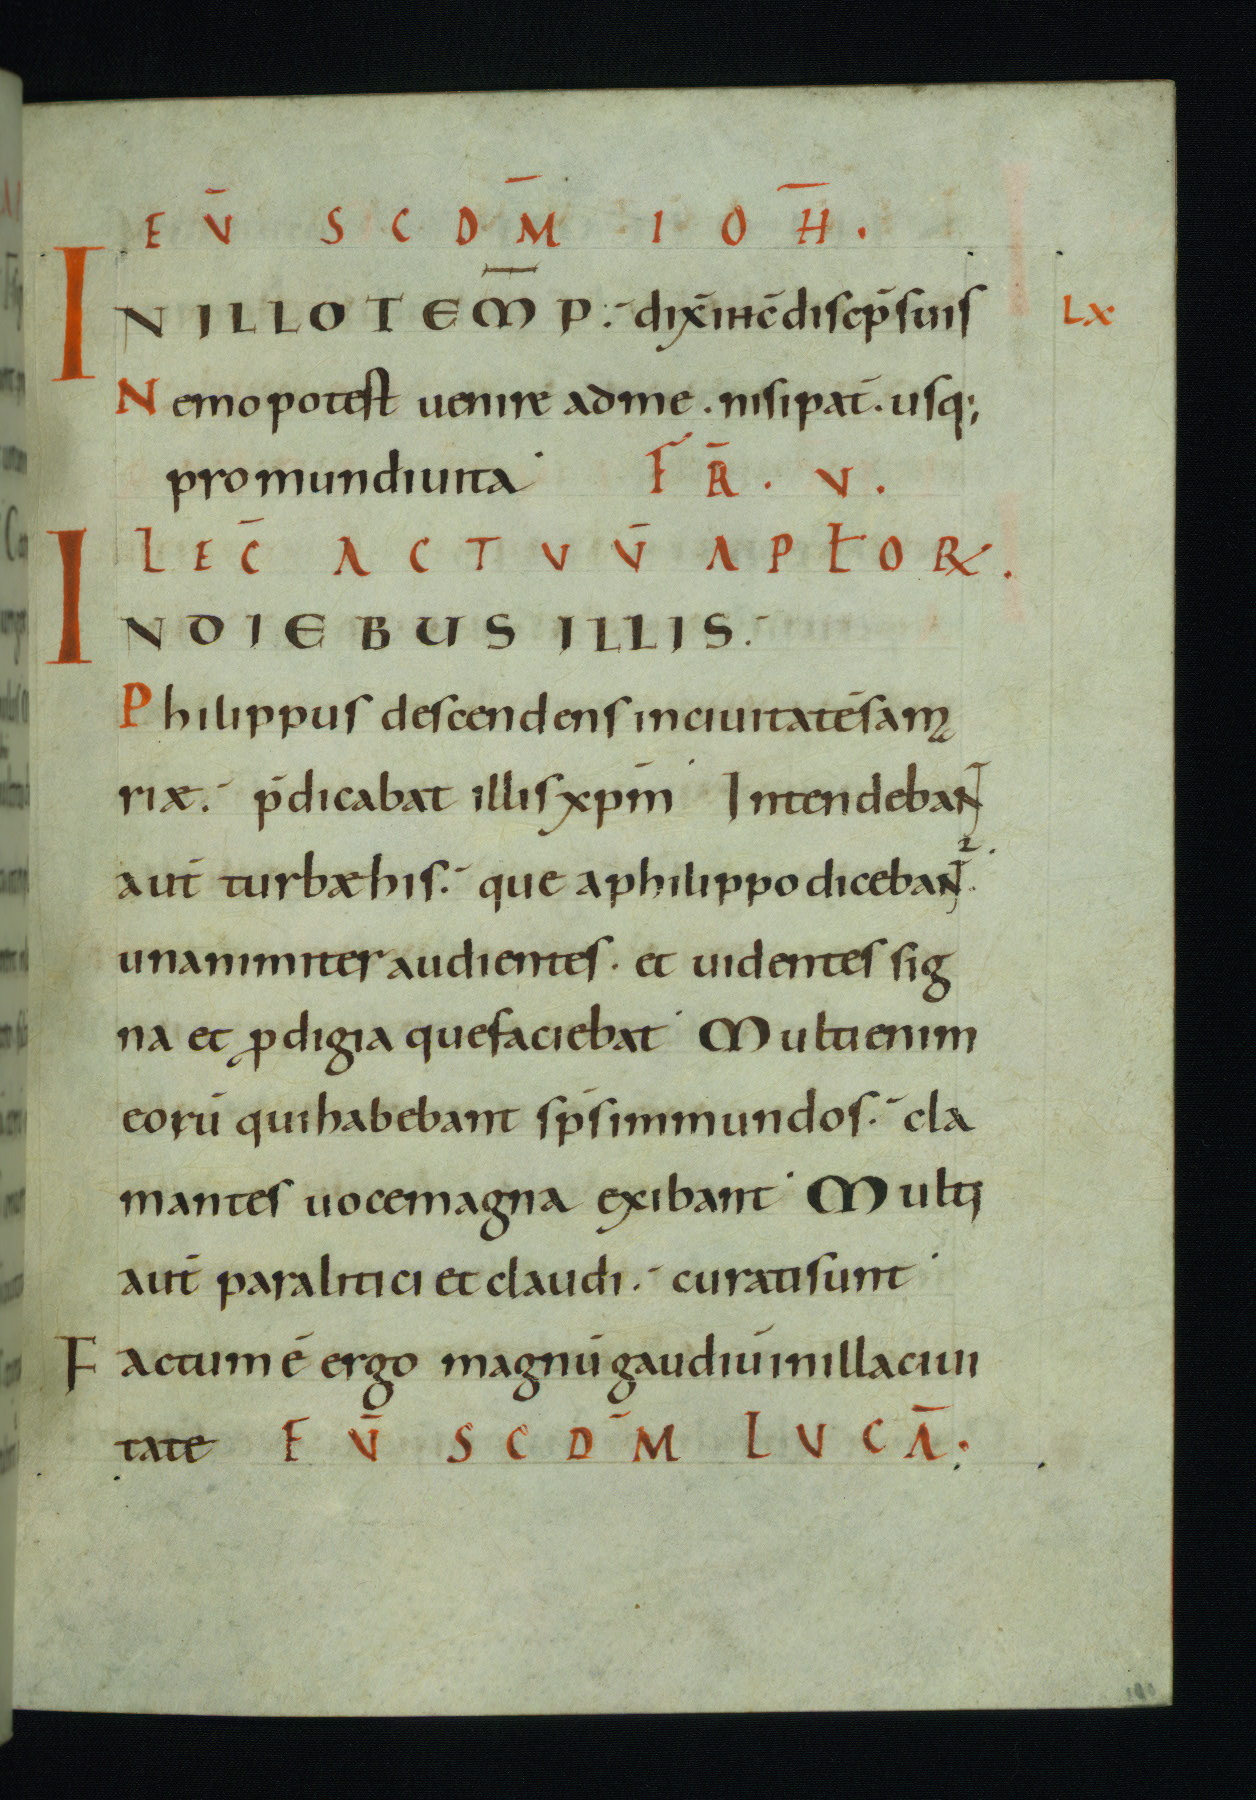 EṼ SCDM̄ IOH̄.
IN ILLO TEM̄P : dix̄ ih̄c̄ discip̄ suis
LX
Nemo potest uenire ad me . nisi pat̄ . usq;
pro mundi uita FR̄ . V .
LEC̄ ACTVV̄ APŁOR
IN DIEBUS ILLIS.
Philippus descendens in ciuitatē sama
riæ. p̄dicabat illis xp̄m Intendebant
aut̄ turbæ his. que a philippo dicebant̄
unanimiter audientes . et uidentes sig
na et ꝓdigia que faciebat Multi enim
eorū qui habebant sp̄s immundos. cla
mantes uoce magna exibant Multi
aut̄ paralitici et claudi. curati sunt
Factum ē ergo magnū gaudiū in illa ciui
tate EV̄ SCDM̄ LVCĀ.